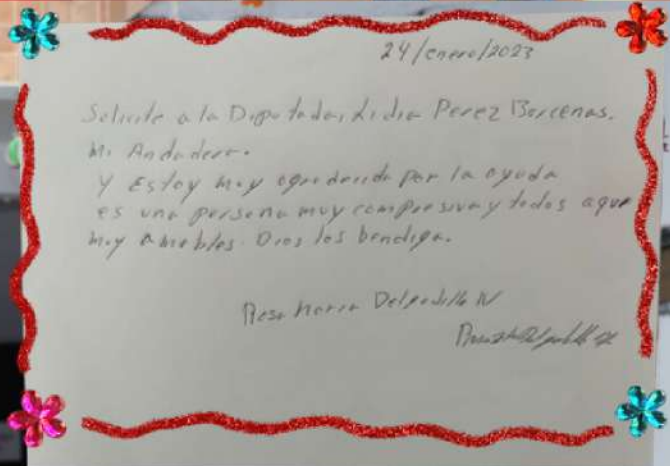 24/enero/2023
Solicite a la Diputada, Lidia Perez Barcenas.
Mi Andadera.
y Estoy muy agradecida por la ayuda
es una persona muy compresiva y todos aqui
muy Amables. Dios los bendiga.
Rosa Maria Delgadillo N